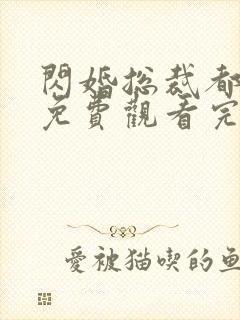 閃婚總裁都
免費觀看完
愛被猫喫的魚